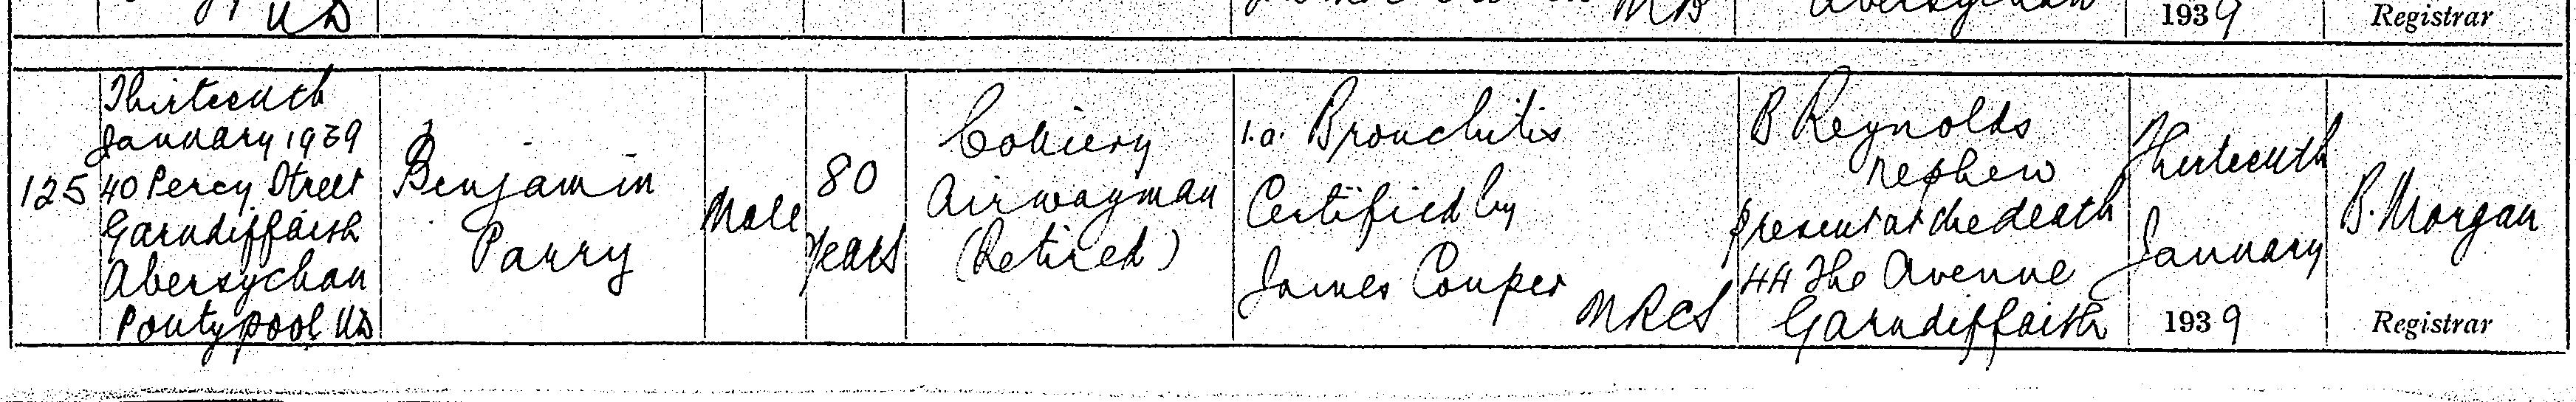 UD
MB
Abersychan
1939
Registrar
125
Thirteenth
January 1939
40 Percy Street
Garndiffaith
Abersychan
Pontypool UD
Benjamin
Parry
Male
80
years
Colliery
Airwayman
(Retired)
1.a. Bronchitis
Certified by
James Couper
MRCS
B Reynolds
nephew
present at the death
44 The Avenue
Garndiffaith
Thirteenth
January
1939
B. Morgan
Registrar